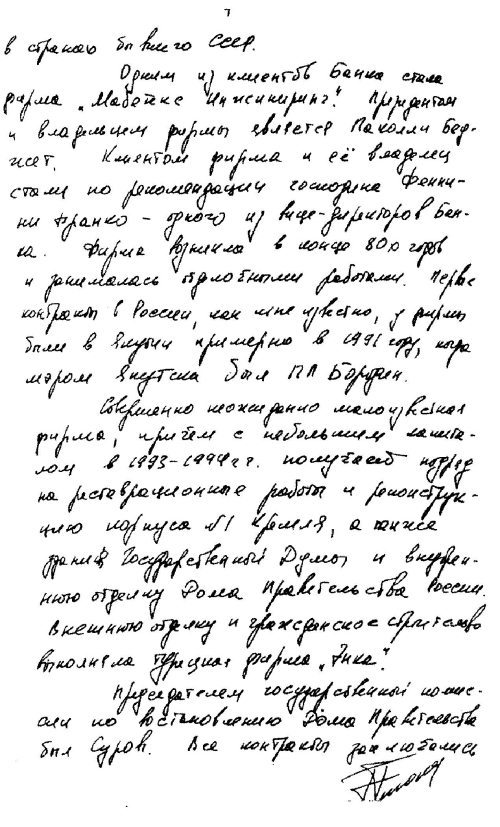 7
в странах бывшего СССР.
Одним из клиентов Банка стала
фирма „Мабетекс Инжиниринг". Президентом
и владельцем фирмы является Паколли Бед-
жет. Клиентом фирма и её владелец
стали по рекомендации господина Фенни-
ни Франко – одного из вице-директоров Бан-
ка. Фирма возникла в конце 80х годов
и занималась отделочными работами. Первые
контракты в России, как мне известно, у фирмы
были в Якутии примерно в 1991 году, когда
мэром Якутска был П П Бородин.
Совершенно неожиданно малоизвестная
фирма, причём с небольшим капита-
лом в 1993-1994 гг. получает подряд
на реставрационные работы и реконструк-
цию корпуса №1 Кремля, а также
здания Государственной Думы и внутрен-
нюю отделку Дома Правительства России.
Внешнюю отделку и гражданское строительство
выполняла турецкая фирма „Энка".
Председателем государственной комис-
сии по востановлению Дома Правительства
был Суров. Все контракты заключались